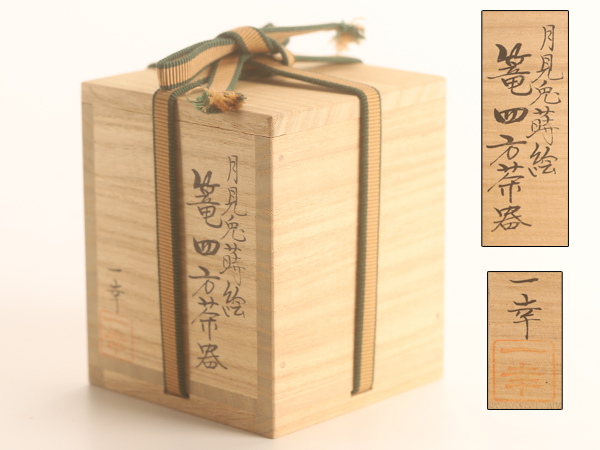 月見兎蒔絵
篭四方茶器
一幸
一幸
月見兎蒔絵
篭四方茶器
一幸
一幸